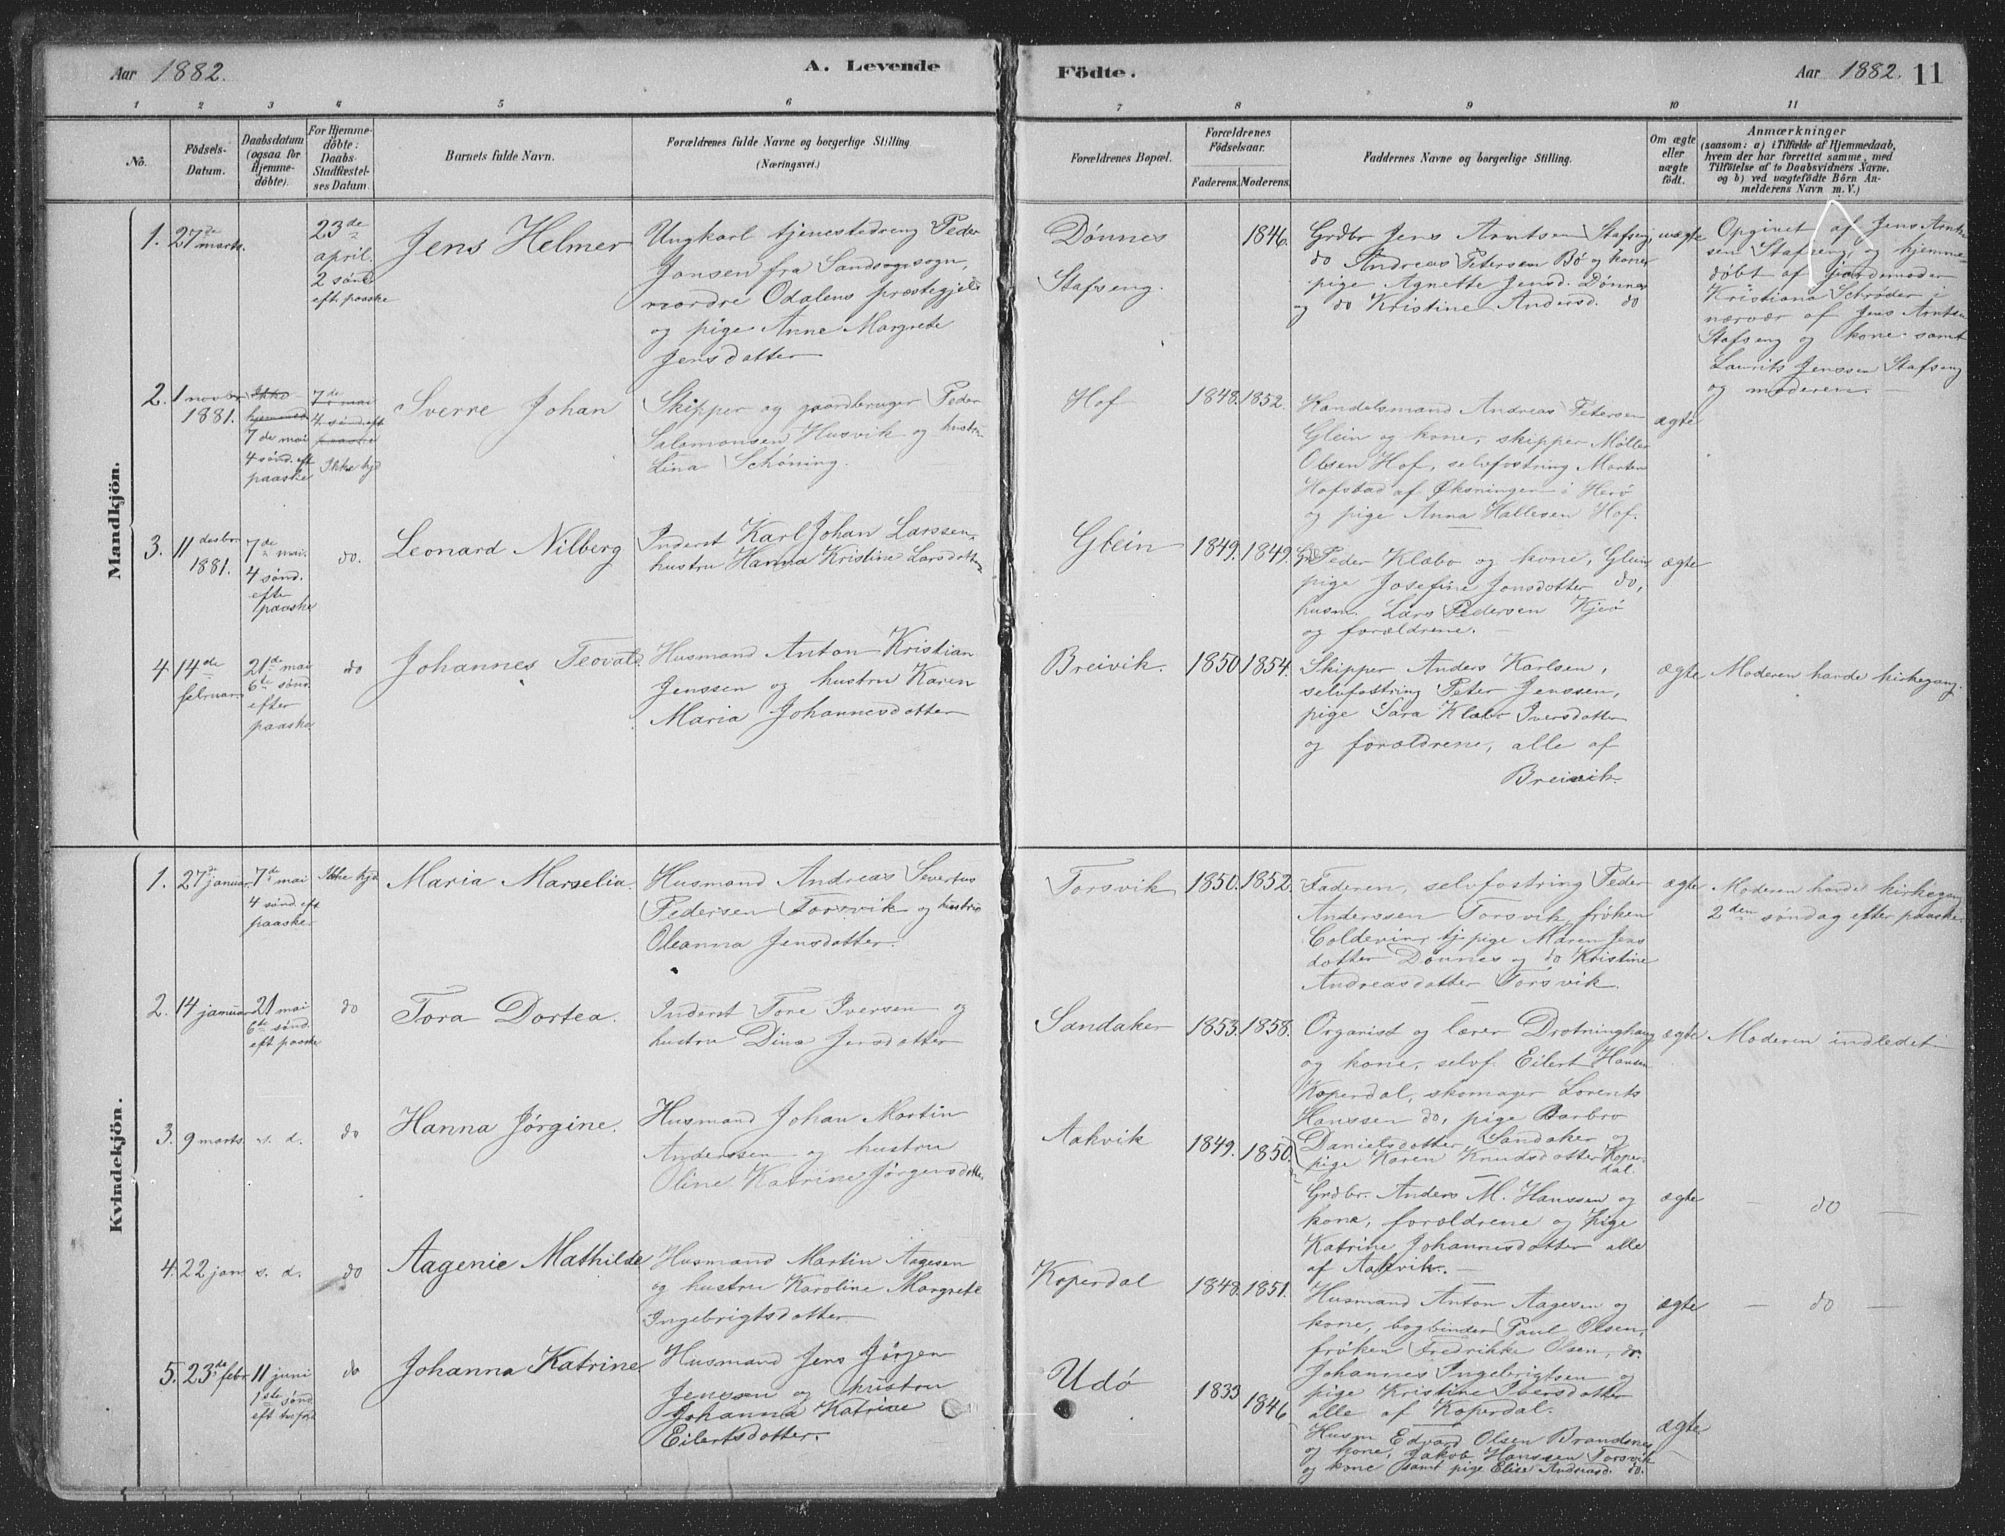 Aar 1882.
A. Levende
Födte.
Aar 1882. 11
1 2 3 4 5 6 7 8 9 10 11
No.
Födsels-
Datum.
Daabsdatum
(ogsaa for
Hjemme-
döbte).
For Hjemme-
döbte:
Daabs-
Stadfæstel-
ses Datum
Barnets fulde Navn.
Forældrenes fulde Navne og borgerlige Stilling
(Næringsvei.)
Forældrenes Bopæl.
Forældrenes
Födselsaar.
Faderens. Moderens.
Faddernes Navne og borgerlige Stilling.
Om ægte
eller
uægte
födt.
Anmærkninger
(saasom: a) i Tilfælde af Hjemmedaab,
hvem der har forrettet samme, med
Tilföielse af to Daabsvidners Navne,
og b) ved uægtefödte Börn An-
melderens Navn m. V.)
Mandkjön.
1. 27de
marts.
23de
april
2 sönd
eft. paaske
Jens Helmer
Ungkarl tjenestedreng Peder
Jansen fra Sands sogn,
nordre Odalens præstegjeld
og pige Anne Margrete
Jensdatter
Dönnes
Stafseng.
1846.
Grdbr Jens Arntsen Stafseng,
do Andreas Petersen Bö og kone,
pige Agnette Jensd. Dönnes
og do Kristine Andersd. do
uægte
Opgivet af Jens Arnt-
sen Stafseng, og hjemme-
döbt af jordemoder
Kristiana Schröder i
nærvær af Jens Arntsen
Stafseng og kone samt
Laurits Jenssen Stafseng
og moderen.
2. 1 novbr
1881.
Ikke
hjemmed
7 de mai
4 sönd. eft
paaske
7de mai
4. sönd. eft
paaske
Ikke hjd
Sverre Johan
Skipper og gaardbruger Peder
Salamonsen Husvik og hustru
Lina Schöning.
Hof
1848. 1852.
Handelsmand Andreas Petersen
Glein og kone, skipper Möller
Olsen Hof, selvfostring Morten
Hofstad af Öksningen i Herö
og pige Anna Hallesen Hof.
ægte
3. 11 desbr
1881.
7de mai.
4 sönd.
efter
paaske
do.
Leonard Nilberg
Inderst Karl Johan Larssen,
hustru Hanna Kristine Larsdatter
Glein
1849. 1849.
Gr Peder Klæbo og kone, Glein
pige Josefine Jonsdatter do,
husm. Lars Pedersen Kjerö
og forældrene.
ægte
4. 14de
februar
21de mai
6te sönd.
efter
paaske
do
Johannes Teovald
Husmand Anton Kristian
Jenssen og hustru Karen
Maria Johannesdatter
Breivik.
1850 1854.
Skipper Anders Karlsen,
selvfostring Peter Jenssen,
pige Sara Klæbo Iversdatter
og forældrene, alle af
Breivik.
ægte
Moderen havde kirkegang.
Kvindekjön.
1. 27de januar
7de mai
4 sönd. eft
paaske
Ikke hjd
Maria Marselia.
Husmand Andreas Severtus
Pedersen Torsvik og hustru
Oleanna Jensdatter.
Torsvik
1850. 1852.
Faderen, selvfostring Peder
Anderssen Torsvik, fröken
Coldevin, tj. pige Maren Jens
datter Dönnes og do Kristine
Andreasdatter Torsvik.
ægte
Moderen havde kirkegang
2den söndag efter paaske
2. 14 januar
21 mai
6te sönd.
eft paaske
do
Tora Dortea.
Inderst Tore Iversen og
hustru Dina Jensdatter
Sandaker
1853. 1858.
Organist og lærer Drotninghaug
og kone, selvf. Eilert Hansen
Koperdal, skomager Lorents
Hanssen do, pige Barbro
Danielsdatter Sandaker og
pige Karen Knudsdatter Koper-
dal.
ægte
Moderen indledet
3. 9 marts
s. d.
do
Hanna Jörgine.
Husmand Johan Martin
Anderssen og hustru
Oline Katrine Jörgensdatter
Aakvik
1849. 1850.
Grdbr. Anders M. Hanssen og
kone, forældrene og pige
Katrine Johannesdatter alle
af Aakvik.
ægte
— do —
4. 22 jan
s. d.
do
Aagenie Mathilde
Husmand Martin Aagesen
og hustru Karoline Margrete
Ingebrigtsdatter
Koperdal
1848. 1851.
Husmand Anton Aagesen og
kone, bogbinder Paul Olsen,
fröken Fredrikke Olsen, do
Johannes Ingebrigtsen og
pige Kristine Iversdatter
alle af Koperdal.
ægte
— do —
5. 23de febr
11 juni
1ste sönd
eft
do
Johanna Katrine
Husmand Jens Jörgen
Jenssen og hustru
Johanna Katrine
Eilertsdatter.
Udö
1833 1846
Husm Edvard Olsen Brandsnes
og kone, Jakob Hanssen Torsvik
og kone samt pige Elise Andreasd. do.
ægte